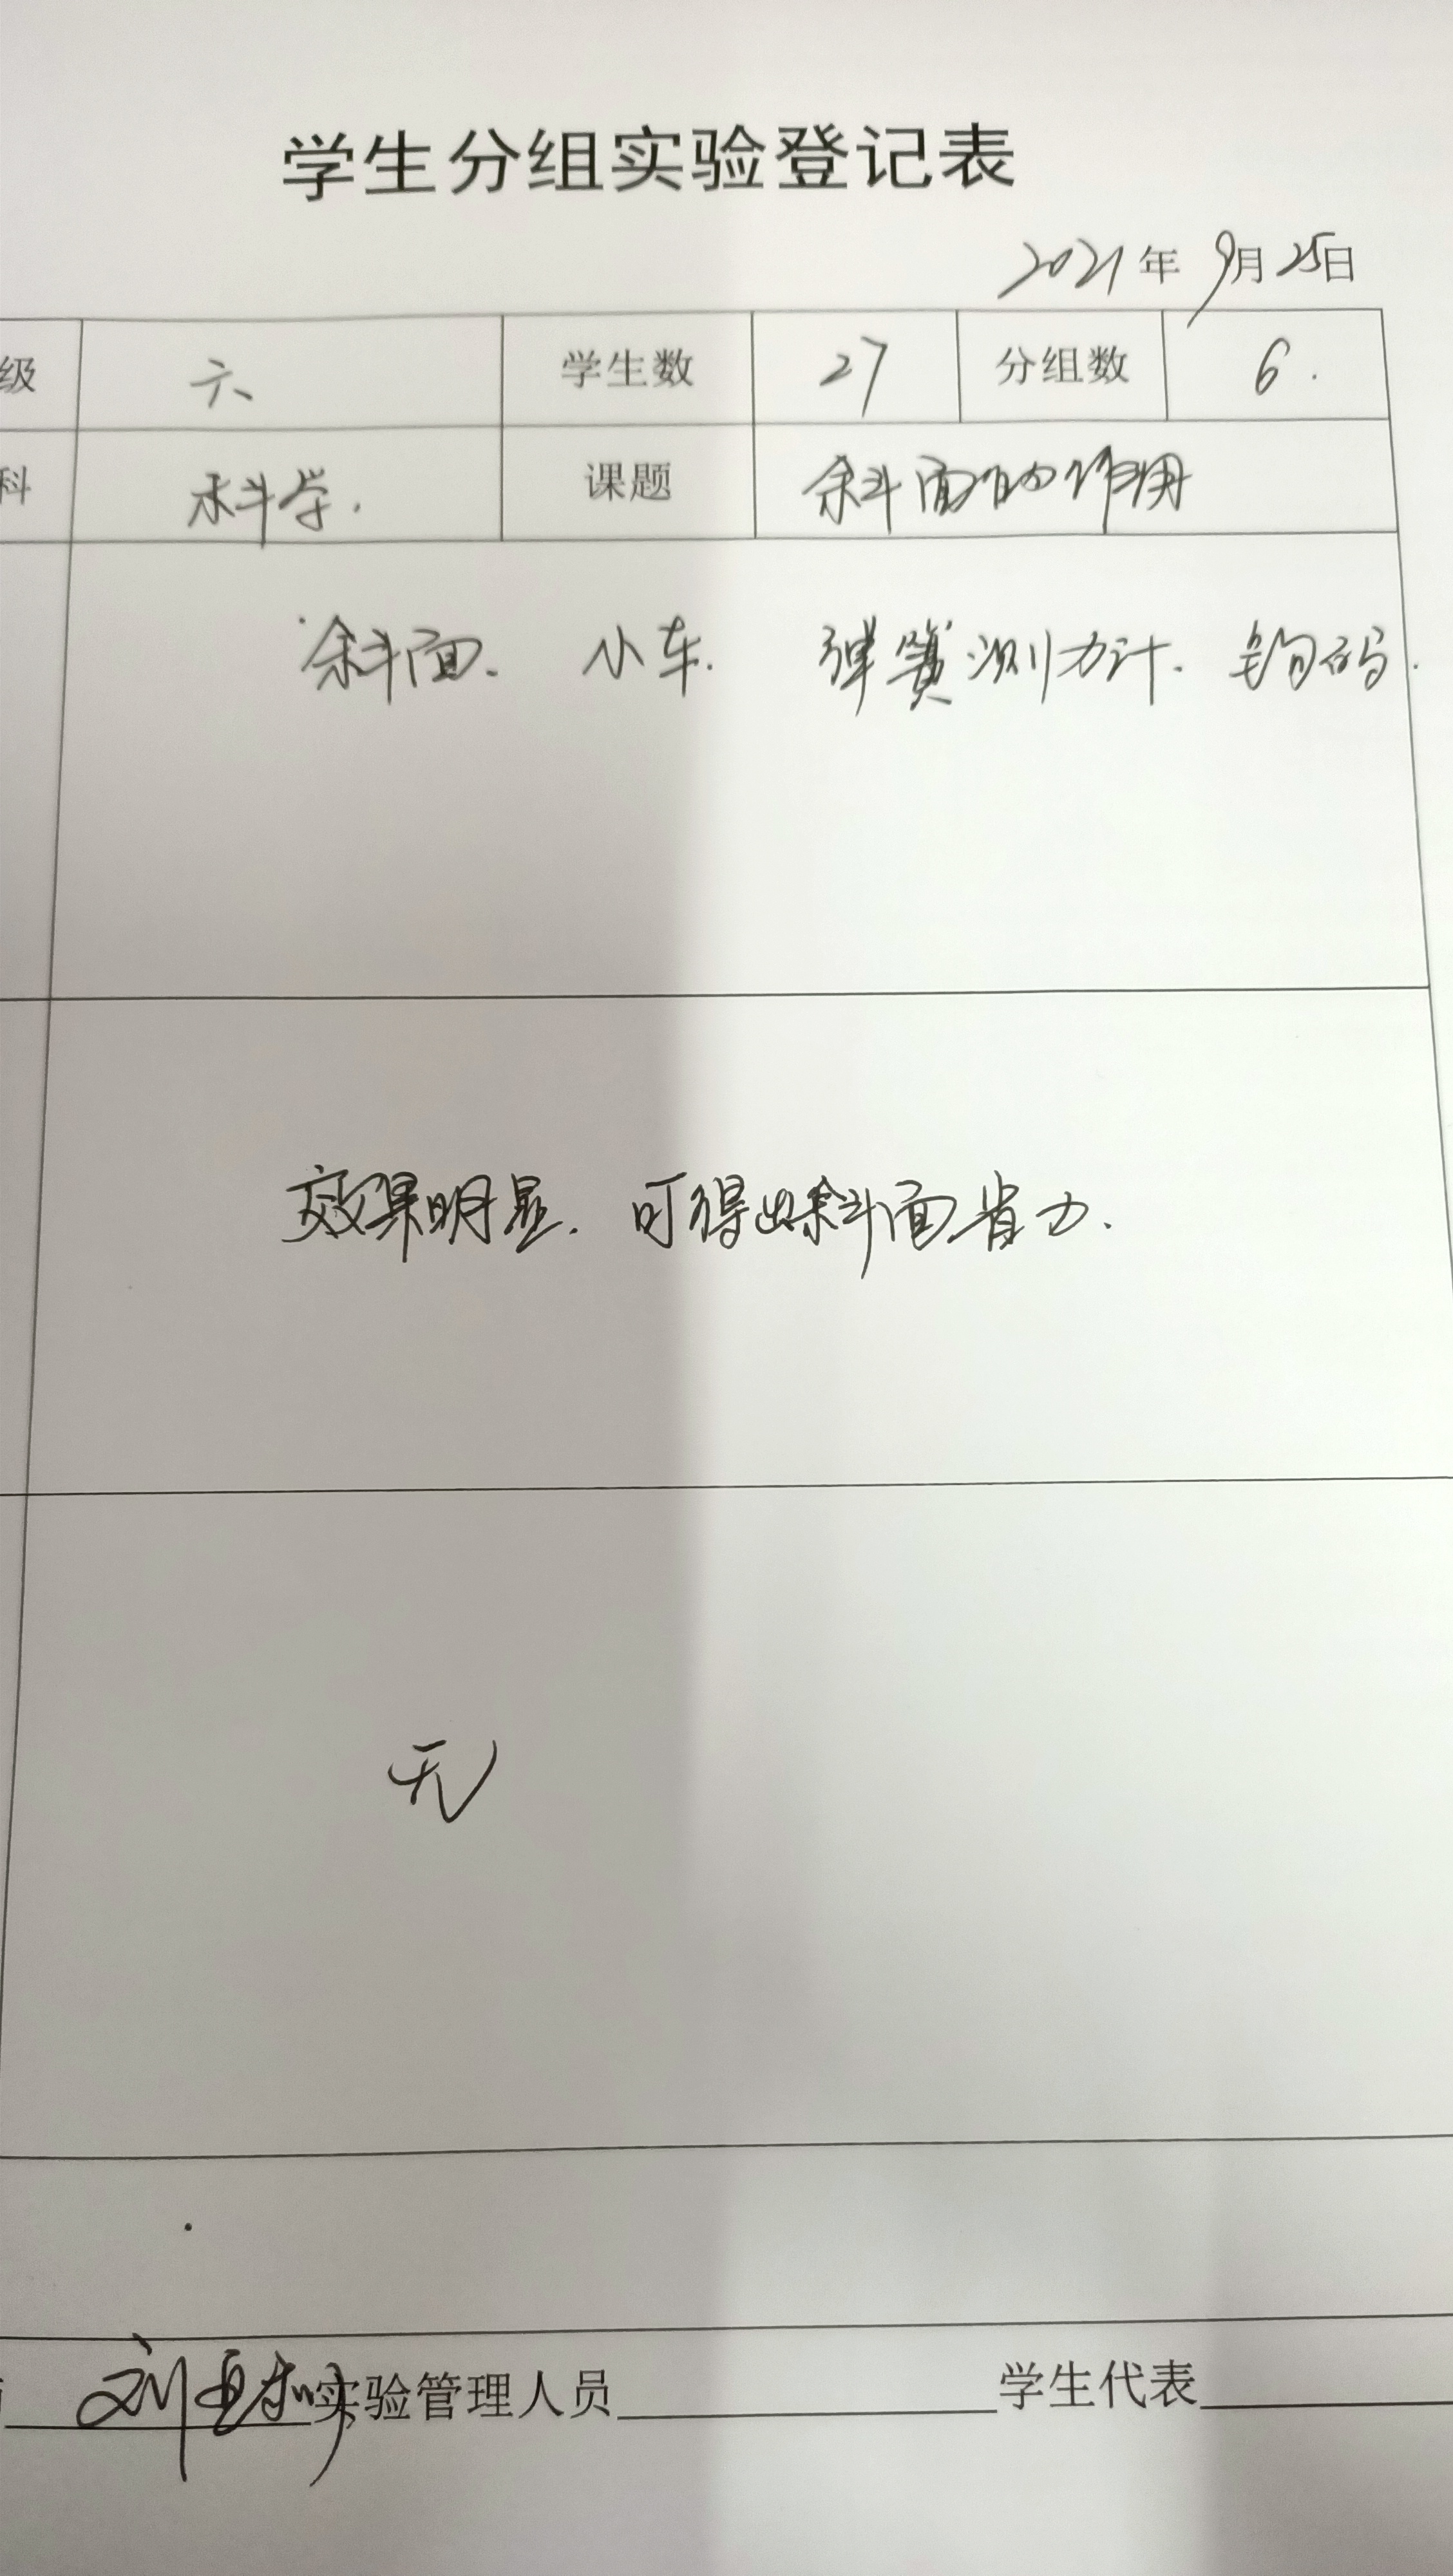 学生分组实验登记表
2021年9月25日
级 六 学生数 27 分组数 6.
科 科学. 课题 斜面的作用
斜面. 小车. 弹簧测力计. 钩码.
效果明显. 可得出斜面省力.
无
实验管理人员 学生代表